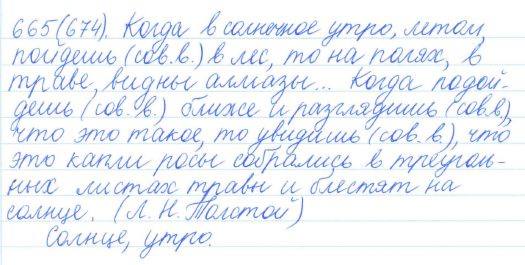 665(674). Когда в солнечное утро, летом,
пойдешь (сов.в.) в лес, то на полях, в
траве, видны алмазы... Когда подой-
дешь (сов. в.) ближе и разглядишь (сов.в),
что это такое, то увидишь (сов. в.), что
это капли росы собрались в треуголь-
ных листах травы и блестят на
солнце. (Л. Н. Толстой)
Солнце, утро.